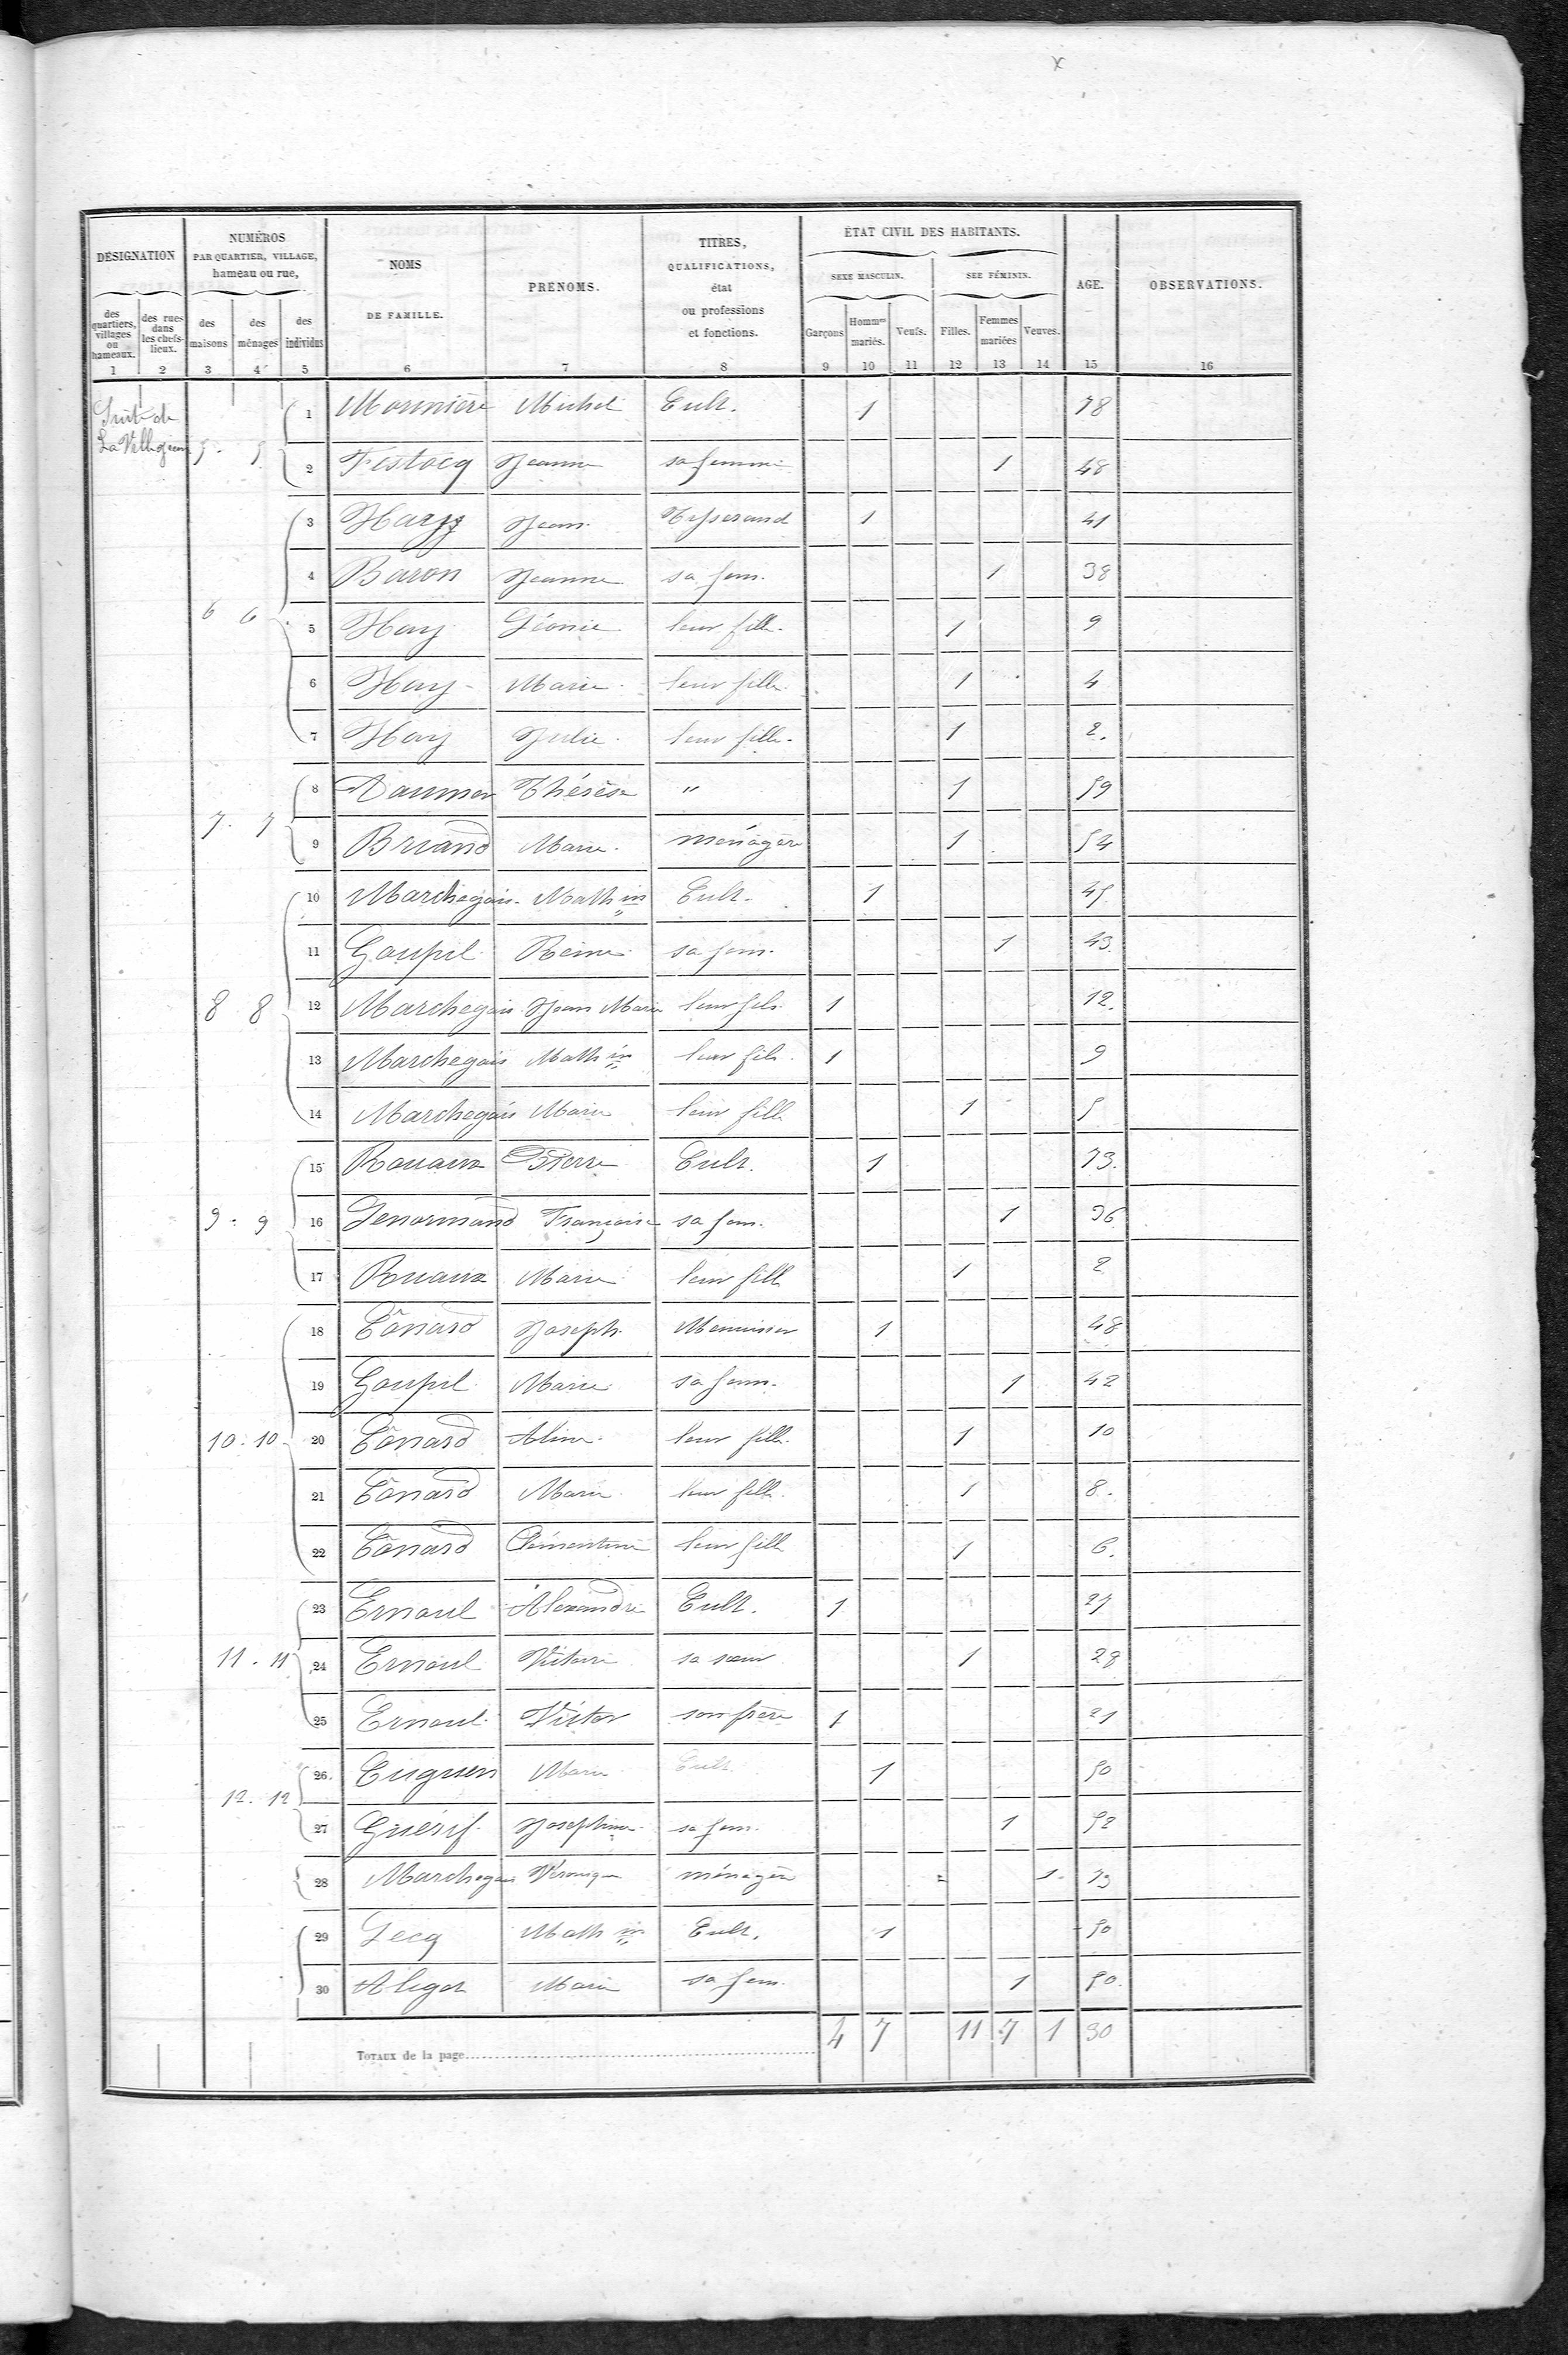 DÉSIGNATION
des quartiers, villages ou hameaux. 1
des rues dans les chefs-lieux. 2
NUMÉROS PAR QUARTIER, VILLAGE, hameau ou rue,
des maisons 3
des ménages 4
des individus 5
NOMS DE FAMILLE. 6
PRÉNOMS. 7
TITRES, QUALIFICATIONS, état ou professions et fonctions. 8
ÉTAT CIVIL DES HABITANTS.
SEXE MASCULIN.
Garçons 9
Hommes mariés. 10
Veufs. 11
SEE FÉMININ.
Filles. 12
Femmes mariées 13
Veuves. 14
AGE. 15
OBSERVATIONS. 16
Suite de
La
1 Monnière Michel Cult. 1 78
5. 5 2 Festocq Jeanne sa femme 1 48
3 Hary Jean Tisserand 1 41
4 Baron Jeanne sa fem. 1 38
6 6 5 Hay Léonie leur fille. 1 9
6 Hay Marie leur fille. 1 4
7 Hay Julie leur fille. 1 2.
8 Daumer Thérèse " 1 59
7. 7 9 Briand Marie ménagère 1 54
10 Marchegais Math in Cult. 1 45
11 Goupil Reine sa fem. 1 43
8 8 12 Marchegais Jean Marie leur fils 1 12.
13 Marchegais Math in leur fils 1 9
14 Marchegais Marie leur fille 1 5
15 Rouaux Pierre Cult. 1 73.
9. 9 16 Lenormand Françoise sa fem. 1 36
17 Rouaux Marie leur fille 1 2
18 Tônard Joseph Menuisier 1 48
19 Goupil Marie sa fem. 1 42
10. 10 20 Tônard Aline leur fille. 1 10
21 Tônard Marie leur fille. 1 8.
22 Tônard Clémentine leur fille 1 6.
23 Ernoul Alexandre Cult. 1 27
11. 11 24 Ernoul Victoire sa sœur 1 29
25 Ernoul Victor son frère 1 21
26 Cuguen Cult. 1 50
12. 12 27 Guérif Joséphine sa fem. 1 52
28 Marchegais Véronique ménagère 1 73
29 Lecq Math in Cult. 1 50
30 Aligot Marie sa fem. 1 50.
TOTAUX de la page 4 7 11 7 1 30